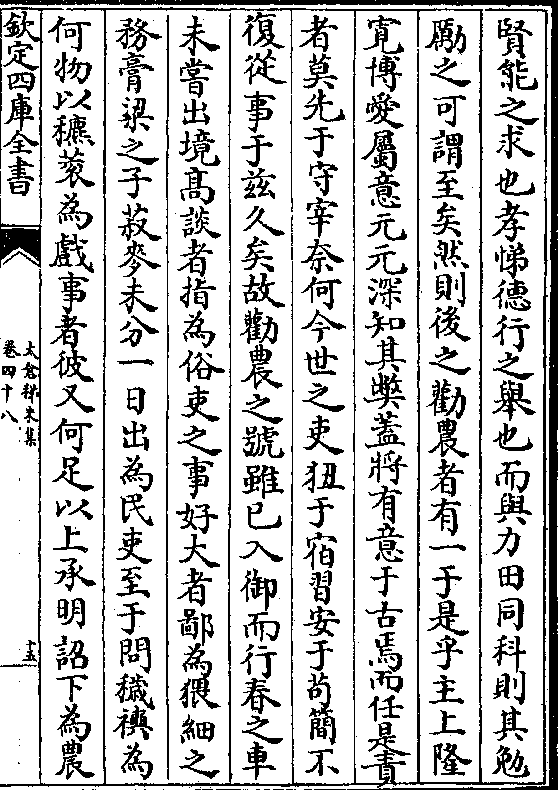 賢能之求也孝悌德行之舉也而與力田同科則其勉
勵之可謂至矣然則後之勸農者有一于是乎主上隆
寛博愛屬意元元深知其弊蓋將有意于古焉而任是責
者莫先于守宰奈何今世之吏狃于宿習安于茍簡不
復從事于兹久矣故勸農之號雖已入御而行春之車
未嘗出境髙談者指為俗吏之事好大者鄙為猥細之
務膏粱之子菽麥未分一日出為民吏至于問穢襖為
何物以穮蔉為戲事者彼又何足以上承明詔下為農
欽定四庫全書
太倉稊米集
卷四十八
十五